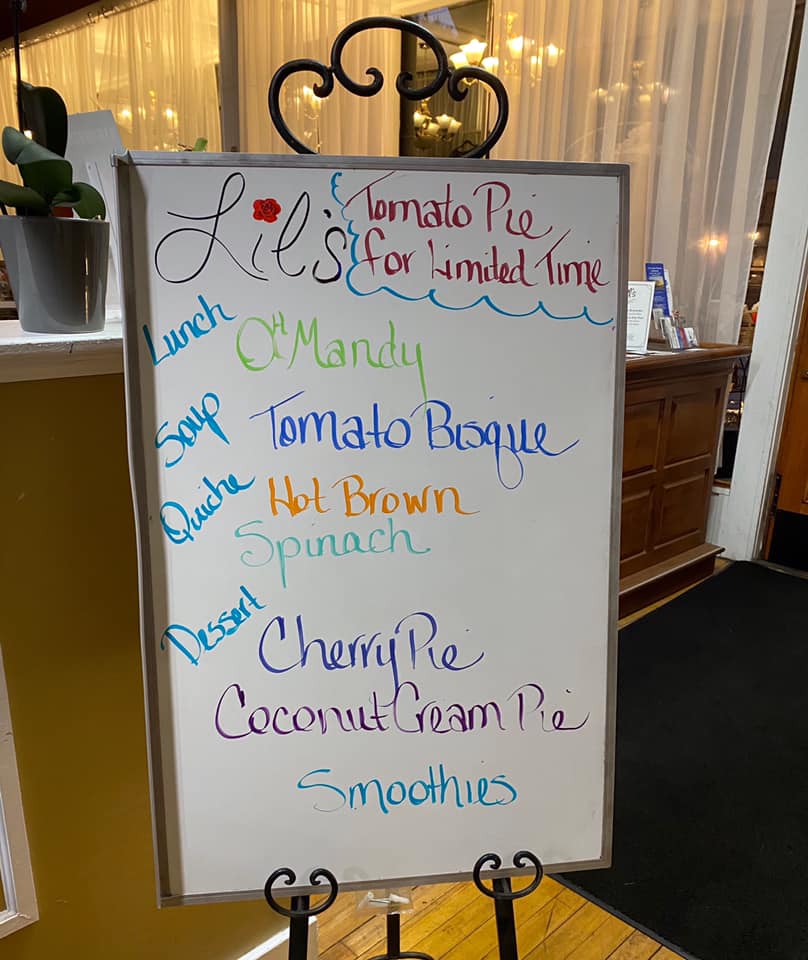 Lil's
Tomato Pie
for Limited Time
Lunch
OH Mandy
Soup
Tomato Bisque
Quiche
Hot Brown
Spinach
Dessert
Cherry Pie
Coconut Cream Pie
Smoothies